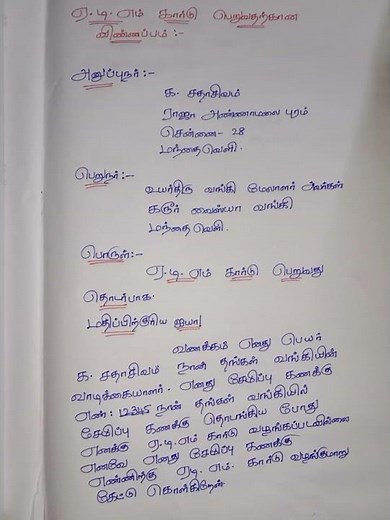 ஏ.டி.எம் கார்டு பெறுவதற்கான
விண்ணப்பம் :-
அனுப்புநர் :-
க. சதாசிவம்
ராஜா அண்ணாமலை புரம்
சென்னை - 28
மந்தைவெளி.
பெறுநர் :-
உயர்திரு வங்கி மேலாளர் அவர்கள்
கரூர் வைஸ்யா வங்கி
மந்தைவெளி.
பொருள் :-
ஏ.டி.எம் கார்டு பெறுவது
தொடர்பாக.
மதிப்பிற்குரிய ஐயா!
வணக்கம் எனது பெயர்
க. சதாசிவம் நான் தங்கள் வங்கியின்
வாடிக்கையாளர். எனது சேமிப்பு கணக்கு
எண் : 12345 நான் தங்கள் வங்கியில்
சேமிப்பு கணக்கு தொடங்கிய போது
எனக்கு ஏ.டி.எம் கார்டு வழங்கப்படவில்லை
எனவே எனது சேமிப்பு கணக்கு
எண்ணிற்கு ஏ.டி.எம். கார்டு வழங்குமாறு
கேட்டு கொள்கிறேன்.